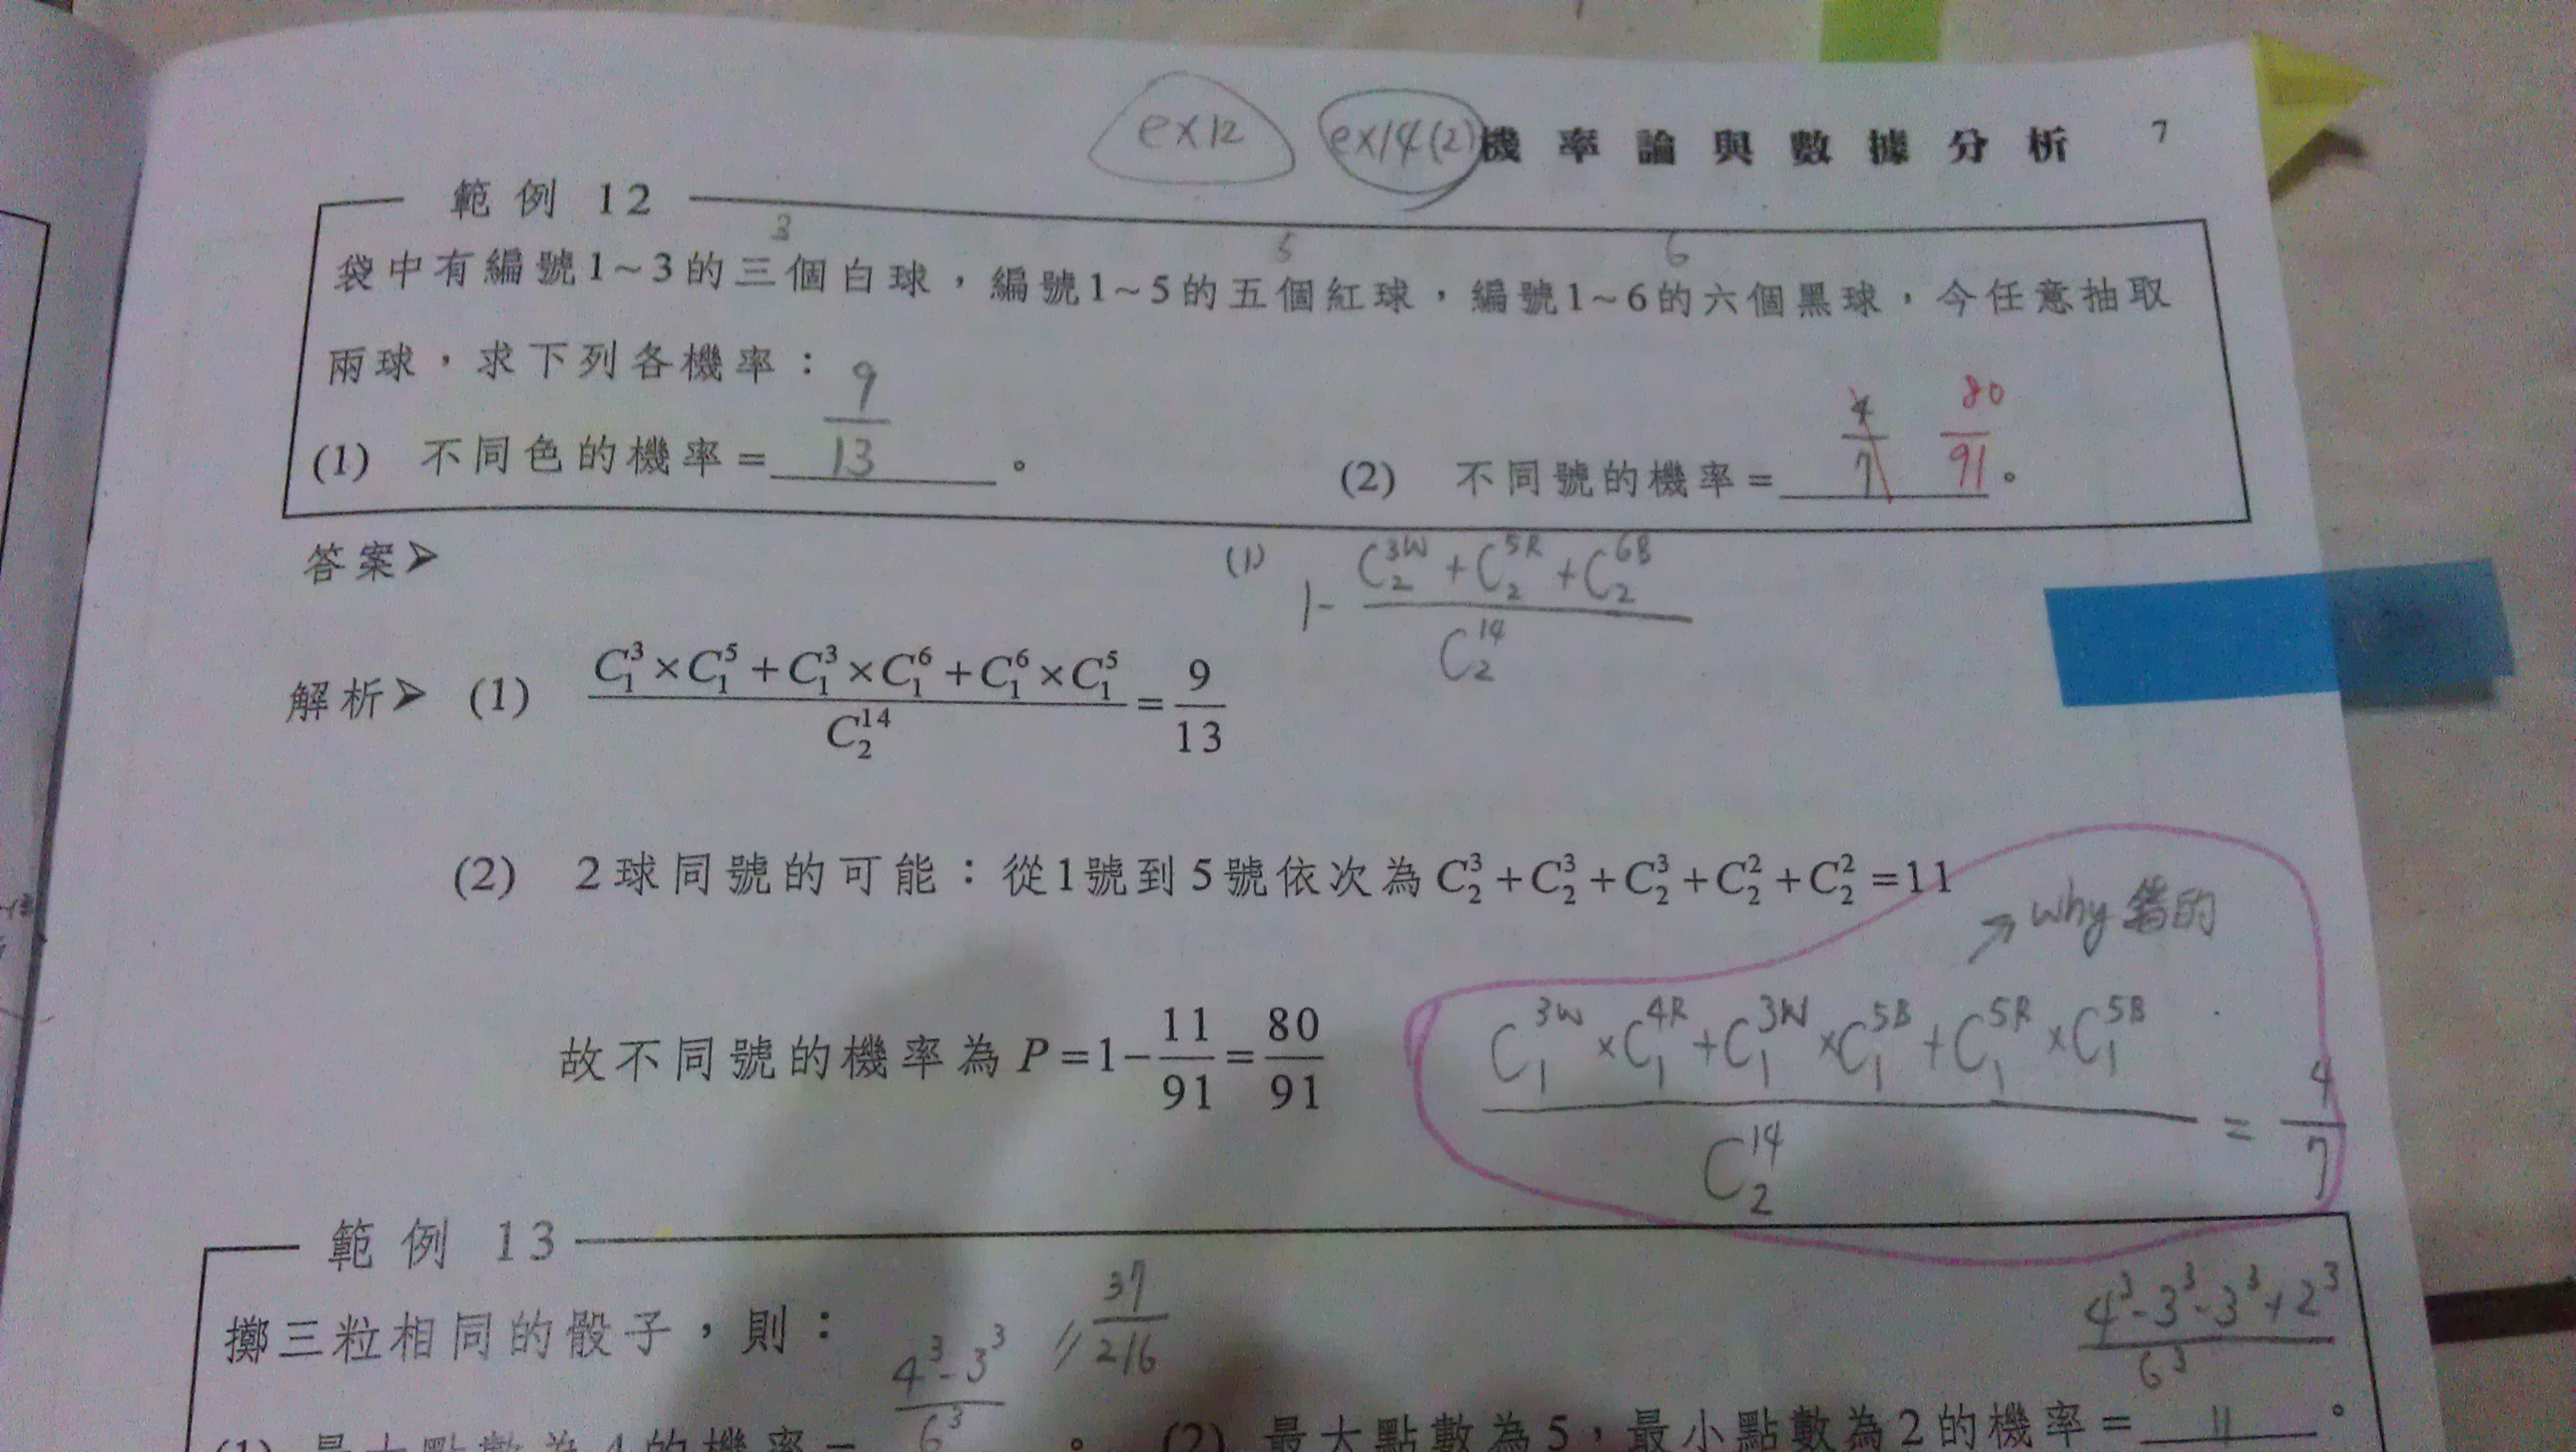 ex12 ex14(2) 機率論與數據分析 7
範例 12
3 5 6
袋中有編號1~3的三個白球，編號1~5的五個紅球，編號1~6的六個黑球，今任意抽取
兩球，求下列各機率：
(1) 不同色的機率= 9/13 。 (2) 不同號的機率= 4/7 80/91 。
答案➤ (1) 1- (C₂^3W + C₂^5R + C₂^6B) / C₂^14
解析➤ (1) (C₁³×C₁⁵+C₁³×C₁⁶+C₁⁶×C₁⁵) / C₂¹⁴ = 9/13
(2) 2球同號的可能：從1號到5號依次為 C₂³+C₂³+C₂³+C₂²+C₂²=11
→ why 錯的
故不同號的機率為 P=1−11/91=80/91
(C₁^3W × C₁^4R + C₁^3W × C₁^5B + C₁^5R × C₁^5B) / C₂^14 = 4/7
範例 13
擲三粒相同的骰子，則： (4³-3³)/6³ 37/216 (4³-3³-3³+2³)/6³
(2) 最大點數為5，最小點數為2的機率= 。